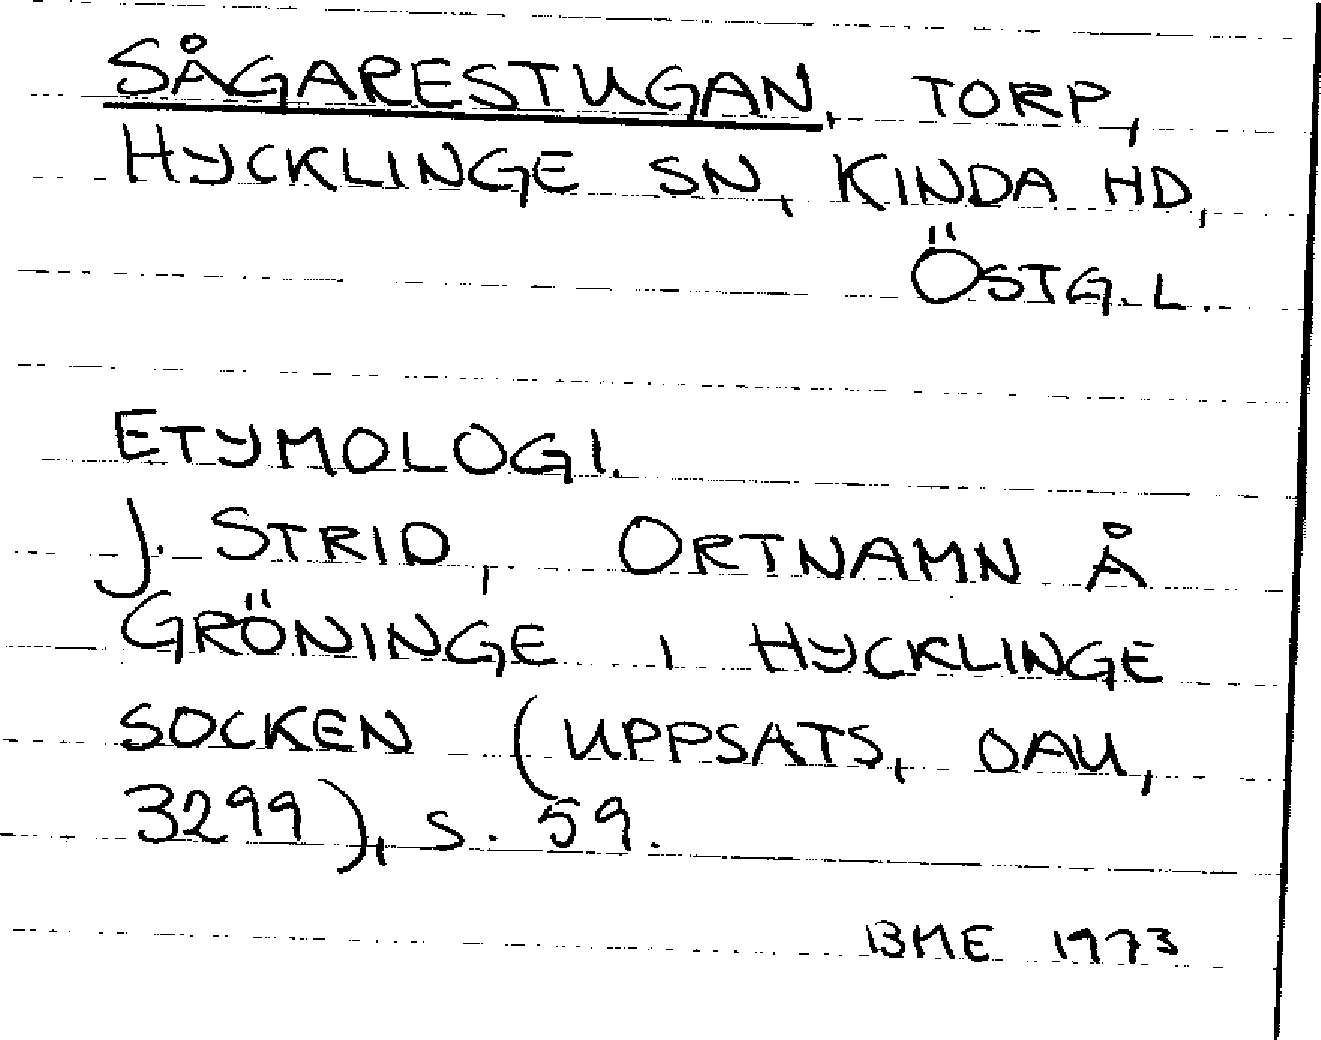 SÅGARESTUGAN, TORP,
HYCKLINGE SN, KINDA HD,
ÖSTG. L.
ETYMOLOGI.
J. STRID, ORTNAMN Å
GRÖNINGE I HYCKLINGE
SOCKEN (UPPSATS, OAU,
3299), S. 59.
BME 1973